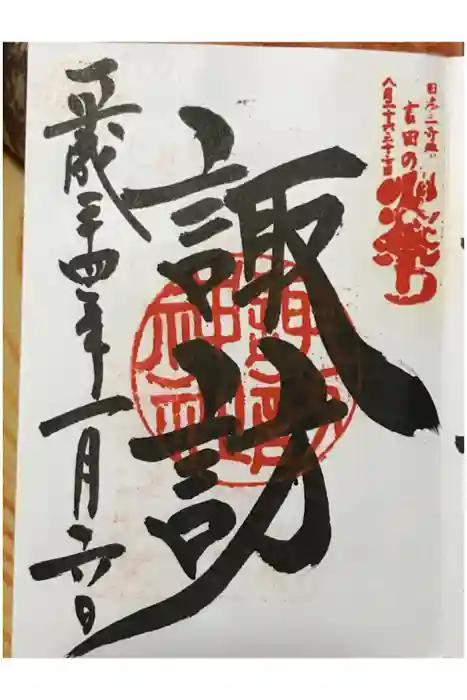 日本三奇祭り
吉田の火祭り
八月二十六・二十七日
諏訪
平成二十四年一月六日